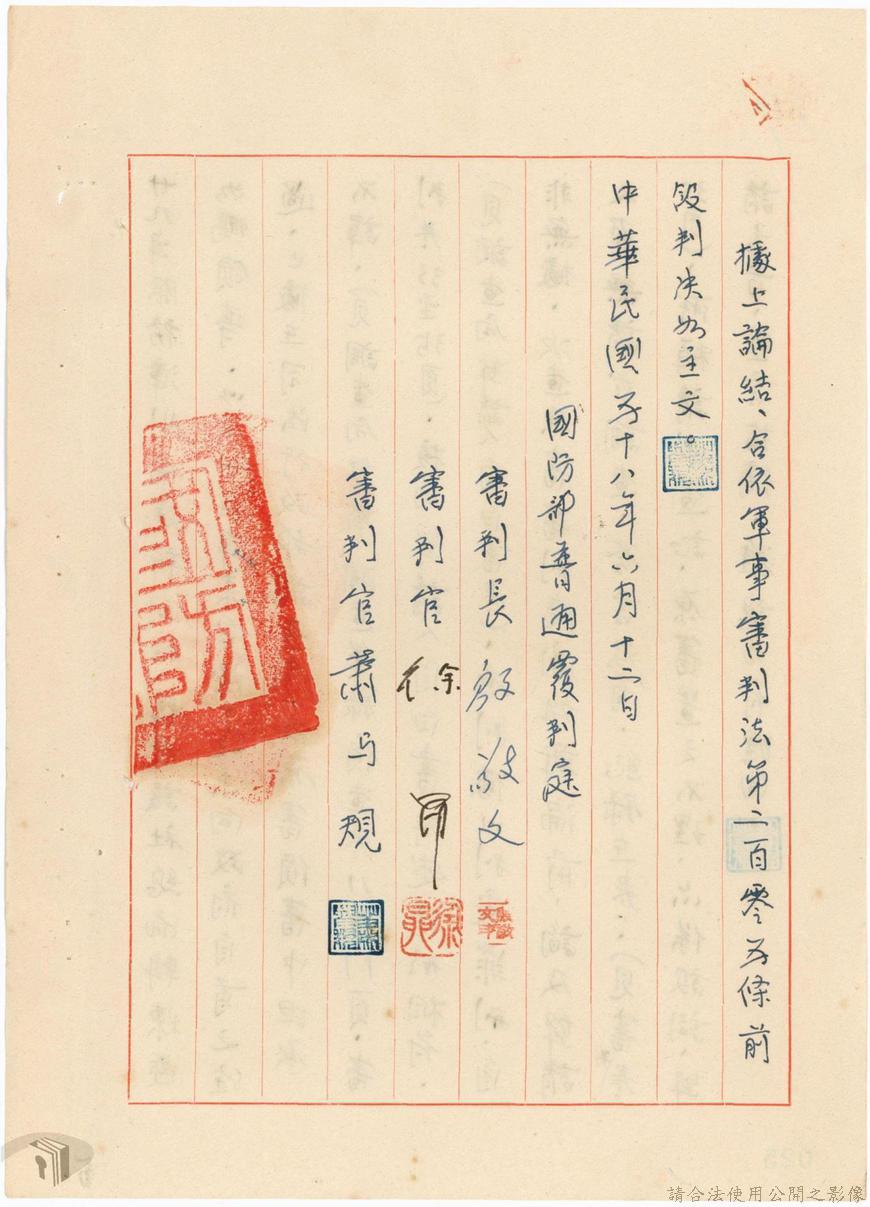 據上論結、合依軍事審判法第二百零五條前
段判決如主文。
中華民國五十八年六月十二日
國防部普通覆判庭
審判長 殷敬文
審判官 徐
審判官 蕭与規
國防
請合法使用公開之影像